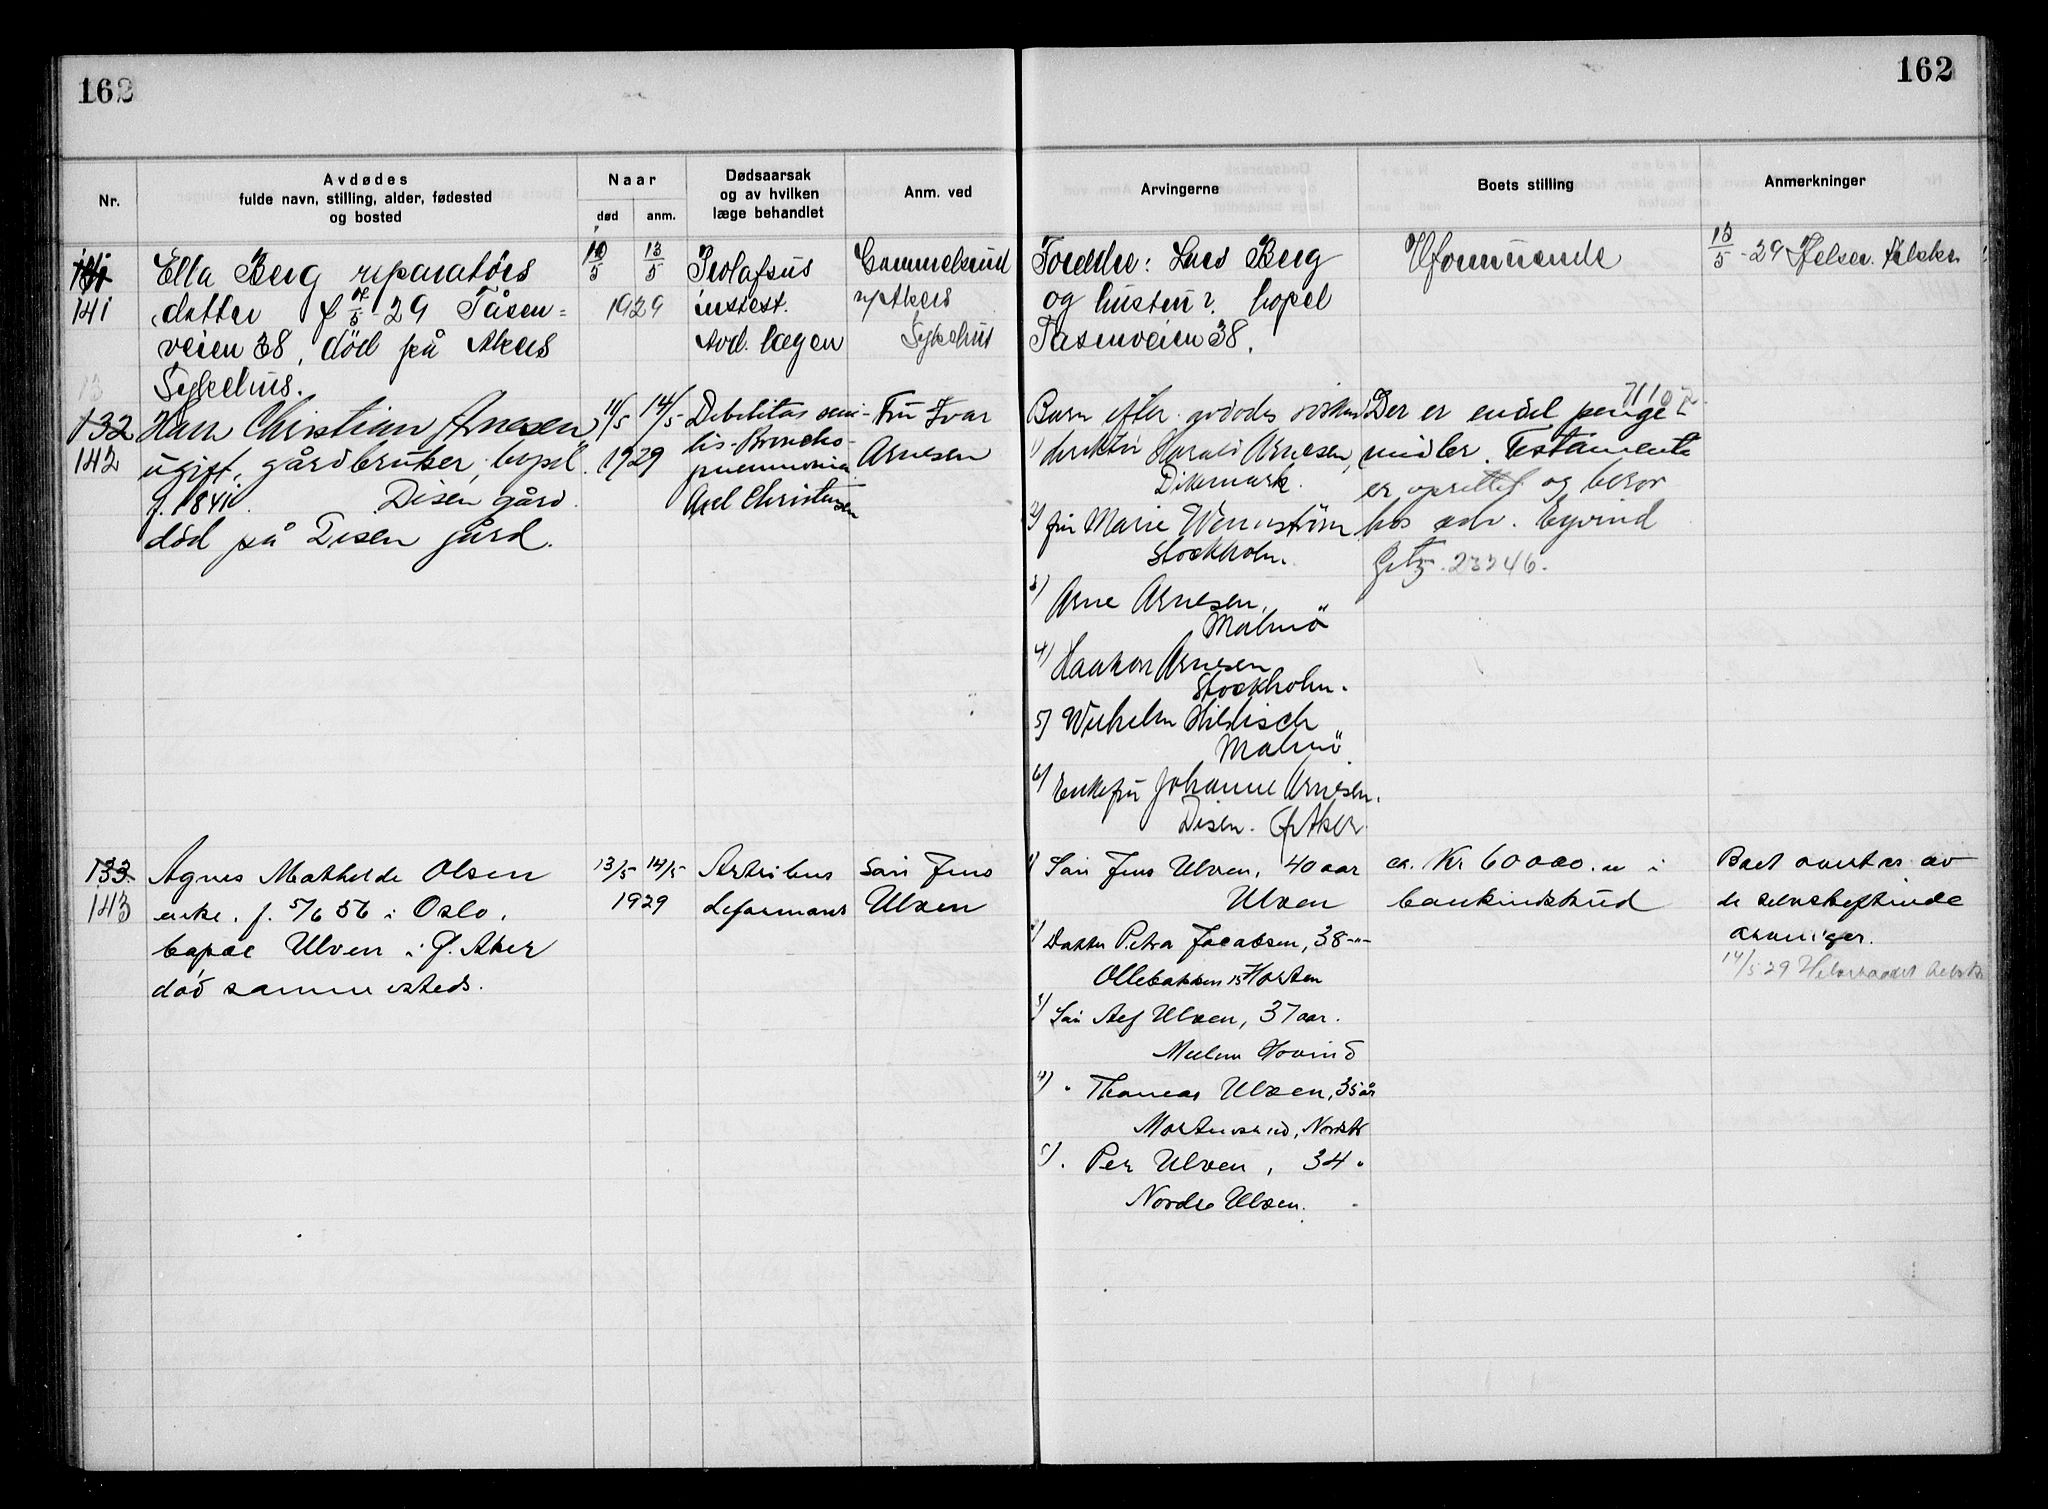 162
162
Nr.
Avdødes
fulde navn, stilling, alder, fødested
og bosted
Naar
død
anm.
Dødsaarsak
og av hvilken
læge behandlet
Anm. ved
Arvingerne
Boets stilling
Anmerkninger
141
Ella Berg reparatørs
datter f 29 Tåsen=
veien 38, død på Akers
Sykehus.
10/5 13/5
1929
Prolafsus
intest.
Avd. lægen
v/Akers
Sykehus
Foreldre: Lars Berg
og hustru ? bopel
Tåsenveien 38.
Uformuende
13/5 - 29
132
142
Hans Christian Arnesen
ugift, gårdbruker, bopel
f. 1841. Disen gård
død på Disen gård.
11/5 14/5
1929
Debilitas seni-
lis - Broncho-
pneumonia
Axel Christensen
Fru Ivar
Arnesen
Barn efter avdødes
1) direktør Harald Arnesen,
Dikemark.
2) fru Marie Wennström
Stockholm.
3) Arne Arnesen,
Malmö
4) Haakon Arnesen
Stockholm.
5) Wilhelm
Malmö.
6) Enkefru Johanne Arnesen.
Disen. Ø Aker
Der er endel penge-
midler. Testamente
er oprettet og beror
hos adv. Eyvind
Getz. 23246.
133.
143
Agnes Mathilde Olsen
enke. f. 5/6 56 i Oslo.
bopæl Ulven i Ø. Aker
død sammesteds.
13/5 14/5
1929
Søn Jens
Ulven
1) Søn Jens Ulven, 40 aar
Ulven
2) Datter Petra Jacobsen, 38 -"-
Ollebakken 15 Horten
3) Søn Alf Ulven, 37 aar.
Hovind
4) " Thomas Ulven, 35 år
Mortensrud, Nordstr
5) " Per Ulven, 34 "
Nordre Ulven.
ca. Kr 60000.- i
bankindskud
Boet overtas av
de selvskiftende
arvinger.
14/5 29